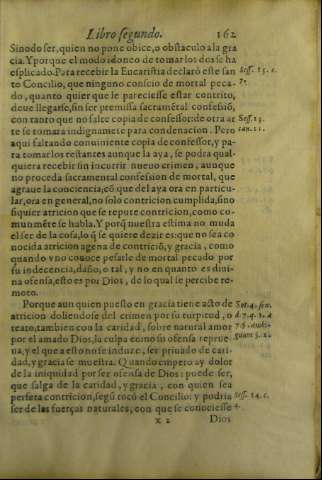 Libro segundo. 162
Sino do ser, quien no pone obice, o obstaculo a la gra
cia. Y porque el modo idoneo de tomar los dos se ha
esplicado. Para recebir la Eucaristia declarò este san
to Concilio, que ninguno conscio de mortal peca-
do, quanto quier que le pareciesse estar contrito,
deue llegarse, sin ser premissa sacramētal confessiō,
con tanto que no falte copia de confessor: de otra ar
te se tomara indignamēte para condenacion. Pero
aqui faltando conuiniente copia de confessor, y pa-
ra tomar los restantes aunque la aya, se podra qual-
quiera recebir sin incurrir nueuo crimen, aunque
no proceda sacramental confession de mortal, que
agraue la conciencia, cō que del aya ora en particu-
lar, ora en general, no solo contricion cumplida, sino
siquier atricion que se repute contricion, como co-
munmēte se habla. Y porq̄ nuestra estima no muda
el ser de la cosa, lo q̄ se quiere dezir es: que no sea co
nocida atricion agena de contriciō, y gracia, como
quando vno conoce pesarle de mortal pecado por
su indecencia, daño, o tal, y no en quanto es diui-
na ofensa, esto es por Dios, de lo qual se percibe re-
moto.
Porque aun quien puesto en gracia tiene acto de
atricion doliendose del crimen por su turpitud, o
reato, tambien con la caridad, sobre natural amor
por el amado Dios, la culpa como su ofensa reprue
ua, y el que a esto no se induze, ser priuado de cari-
dad, y gracia se muestra. Quando empero ay dolor
de la iniquidad por ser ofensa de Dios: puede ser,
que salga de la caridad, y gracia, con quien sea
perfeta contricion, segū tocò el Concilio: y podria
ser de las fuerças naturales, con que se conociesse
x 2 Dios
Sess. 13. c.
7.
Sess. 13.
can. 11.
Sess. 14. c.
4.